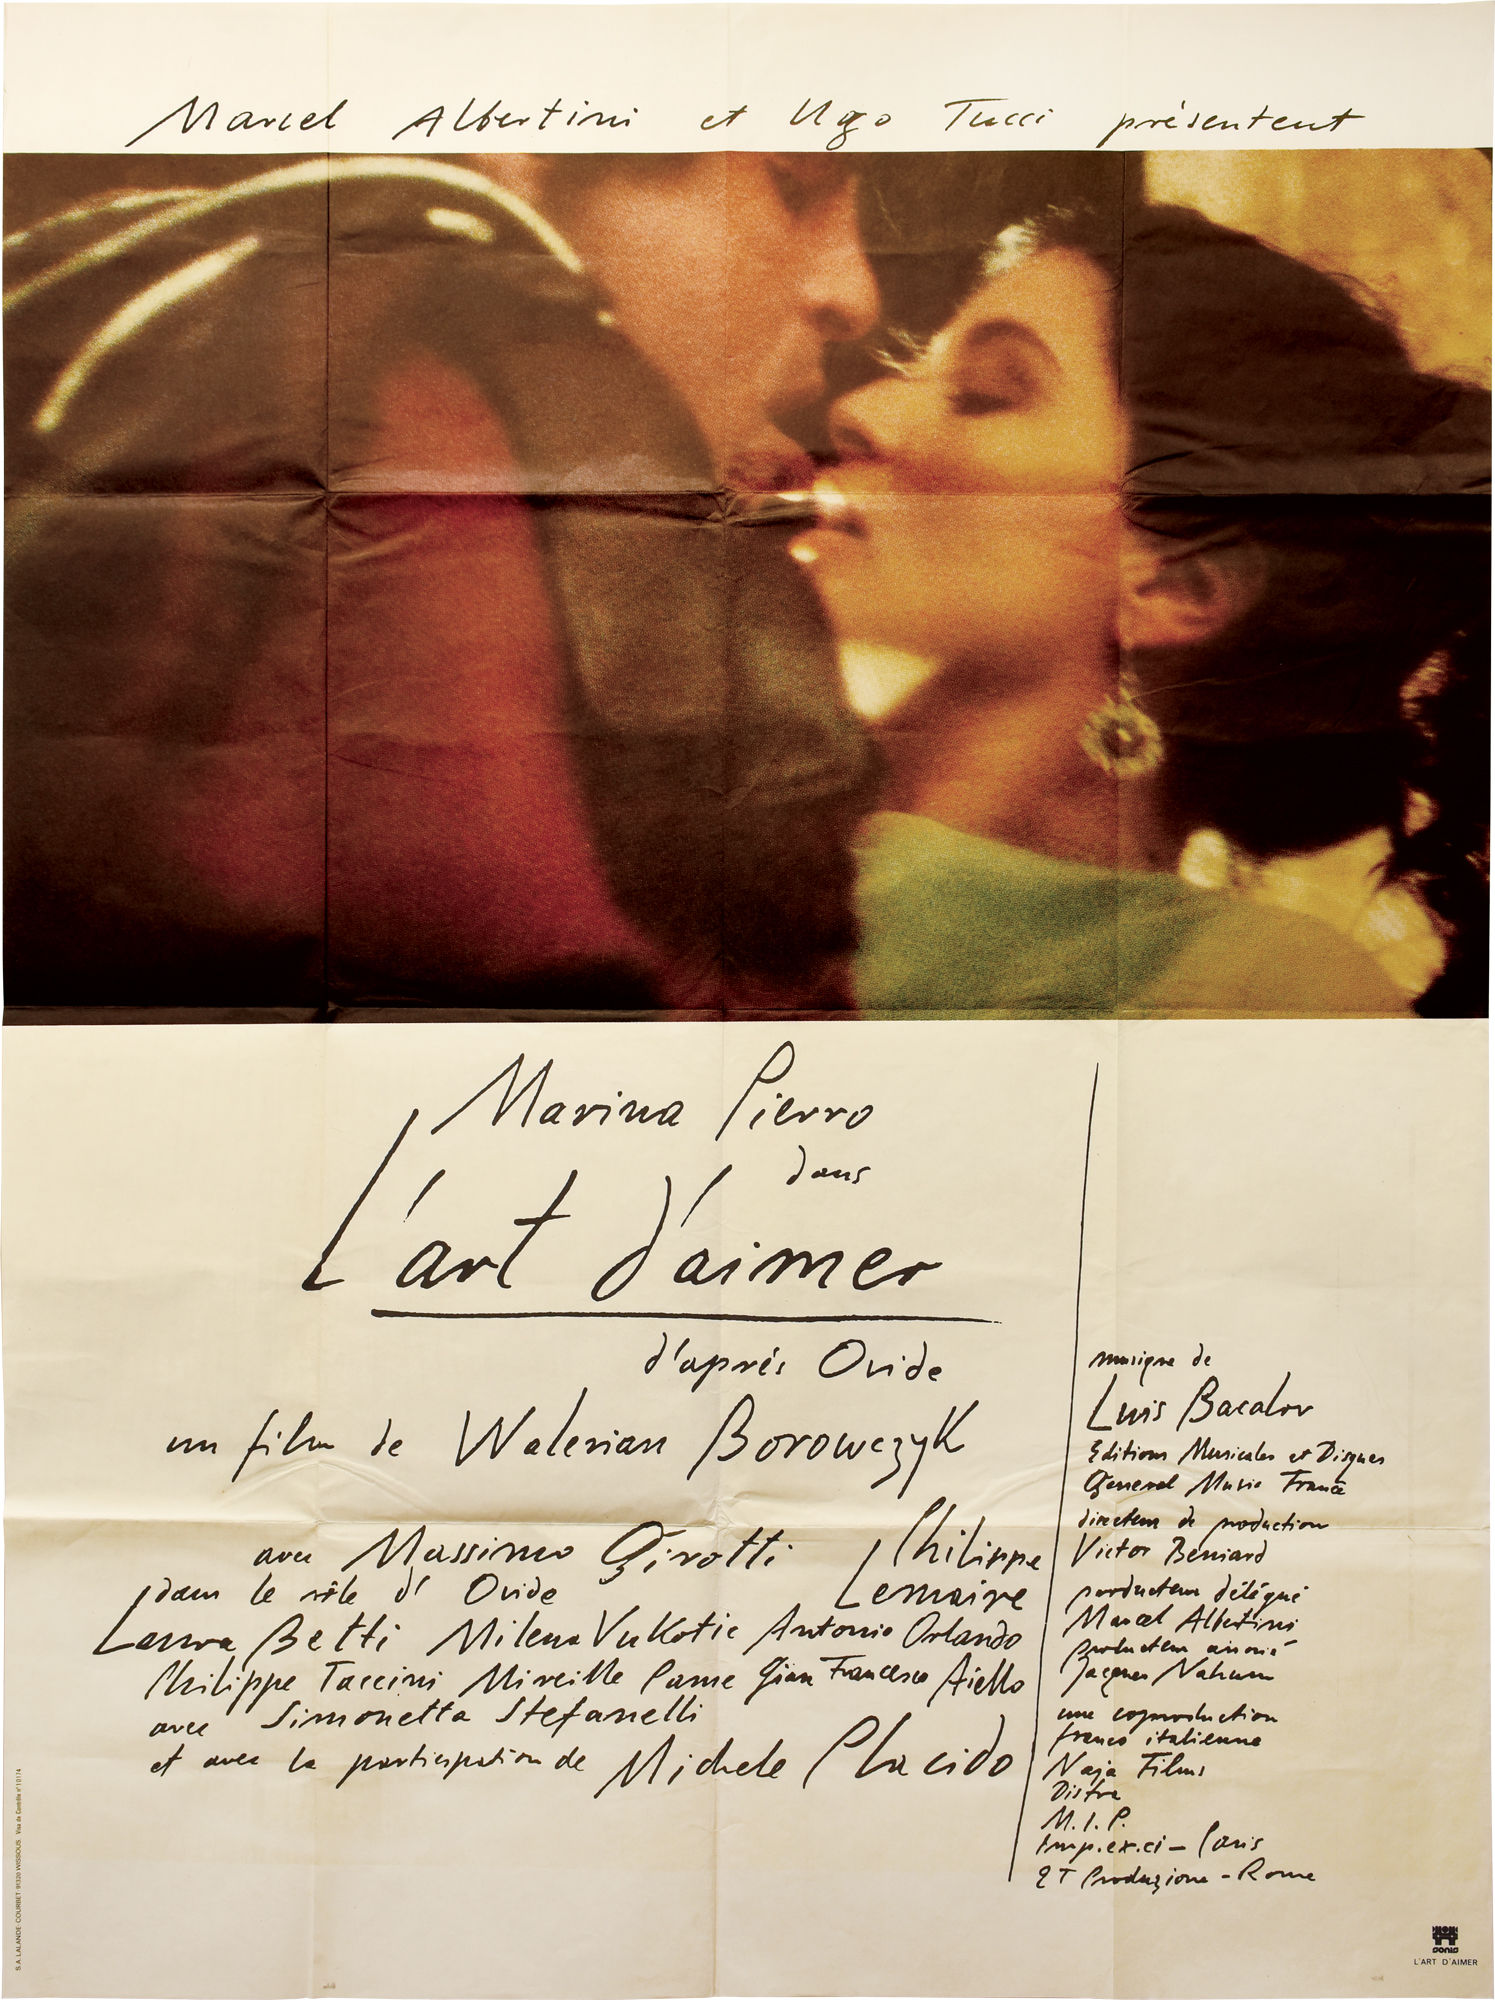 Marcel Albertini et Ugo Tucci présentent
Marina Pierro
dans
L'art d'aimer
d'après Ovide
un film de Walerian Borowczyk
avec Massimo Girotti
dans le rôle d'Ovide
Philippe
Lemaire
Laura Betti Milena Vukotic Antonio Orlando
Philippe Taccini Mireille Pame Gian Francesco Aiello
avec Simonetta Stefanelli
et avec la participation de Michele Placido
musique de
Luis Bacalov
Editions Musicales et Disques
General Music France
directeur de production
Victor Beniard
producteur délégué
Marcel Albertini
producteur associé
Jacques Nahum
une coproduction
franco italienne
Naja Films
Distra
M.I.P.
Imp.ex.ci - Paris
2T Produzione - Rome
S.A. LALANDE-COURBET-91320 WISSOUS Visa de Contrôle n° 10174
sonis
L'ART D'AIMER